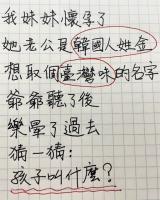 我妹妹懷孕了
她老公是韓國人姓金
想取個臺灣味的名字
爺爺聽了後
樂暈了過去
猜一猜：
孩子叫什麼？